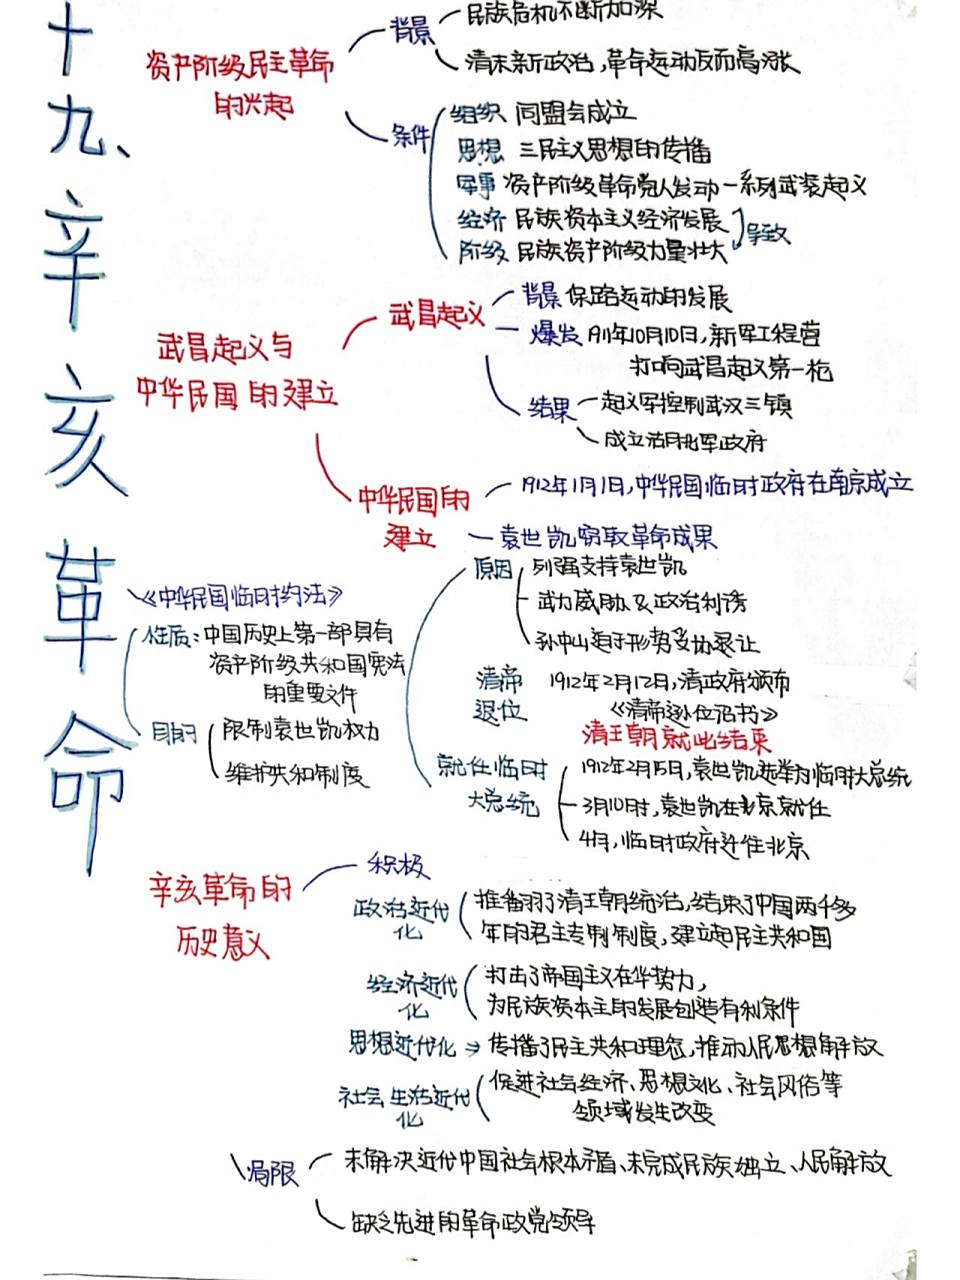 十九、辛亥革命
资产阶级民主革命
的兴起
背景
民族危机不断加深
清末新政治,革命运动反而高涨
条件
组织 同盟会成立
思想 三民主义思想的传播
军事 资产阶级革命党人发动一系列武装起义
经济 民族资本主义经济发展
阶级 民族资产阶级力量壮大
导致
武昌起义与
中华民国的建立
武昌起义
背景 保路运动的发展
爆发 1911年10月10日,新军工程营
打响武昌起义第一枪
结果
起义军控制武汉三镇
成立湖北军政府
中华民国的
建立
1912年1月1日,中华民国临时政府在南京成立
袁世凯窃取革命成果
原因
列强支持袁世凯
武力威胁及政治利诱
孙中山迫于形势妥协退让
清帝
退位
1912年2月12日,清政府颁布
《清帝逊位诏书》
清王朝就此结束
就任临时
大总统
1912年2月15日,袁世凯选举为临时大总统
3月10时,袁世凯在北京就任
4月,临时政府迁往北京
《中华民国临时约法》
性质:中国历史上第一部具有
资产阶级共和国宪法
的重要文件
目的
限制袁世凯权力
维护共和制度
辛亥革命的
历史意义
积极
政治近代
化
推番羽了清王朝统治,结束了中国两千多
年的君主专制制度,建立起民主共和国
经济近代
化
打击了帝国主义在华势力,
为民族资本主的发展创造有利条件
思想近代化→传播了民主共和理念,推动人民思想解放
社会生活近代
化
促进社会经济、思想文化、社会风俗等
领域发生改变
局限
未解决近代中国社会根本矛盾、未完成民族独立、人民解放
缺乏先进的革命政党领导